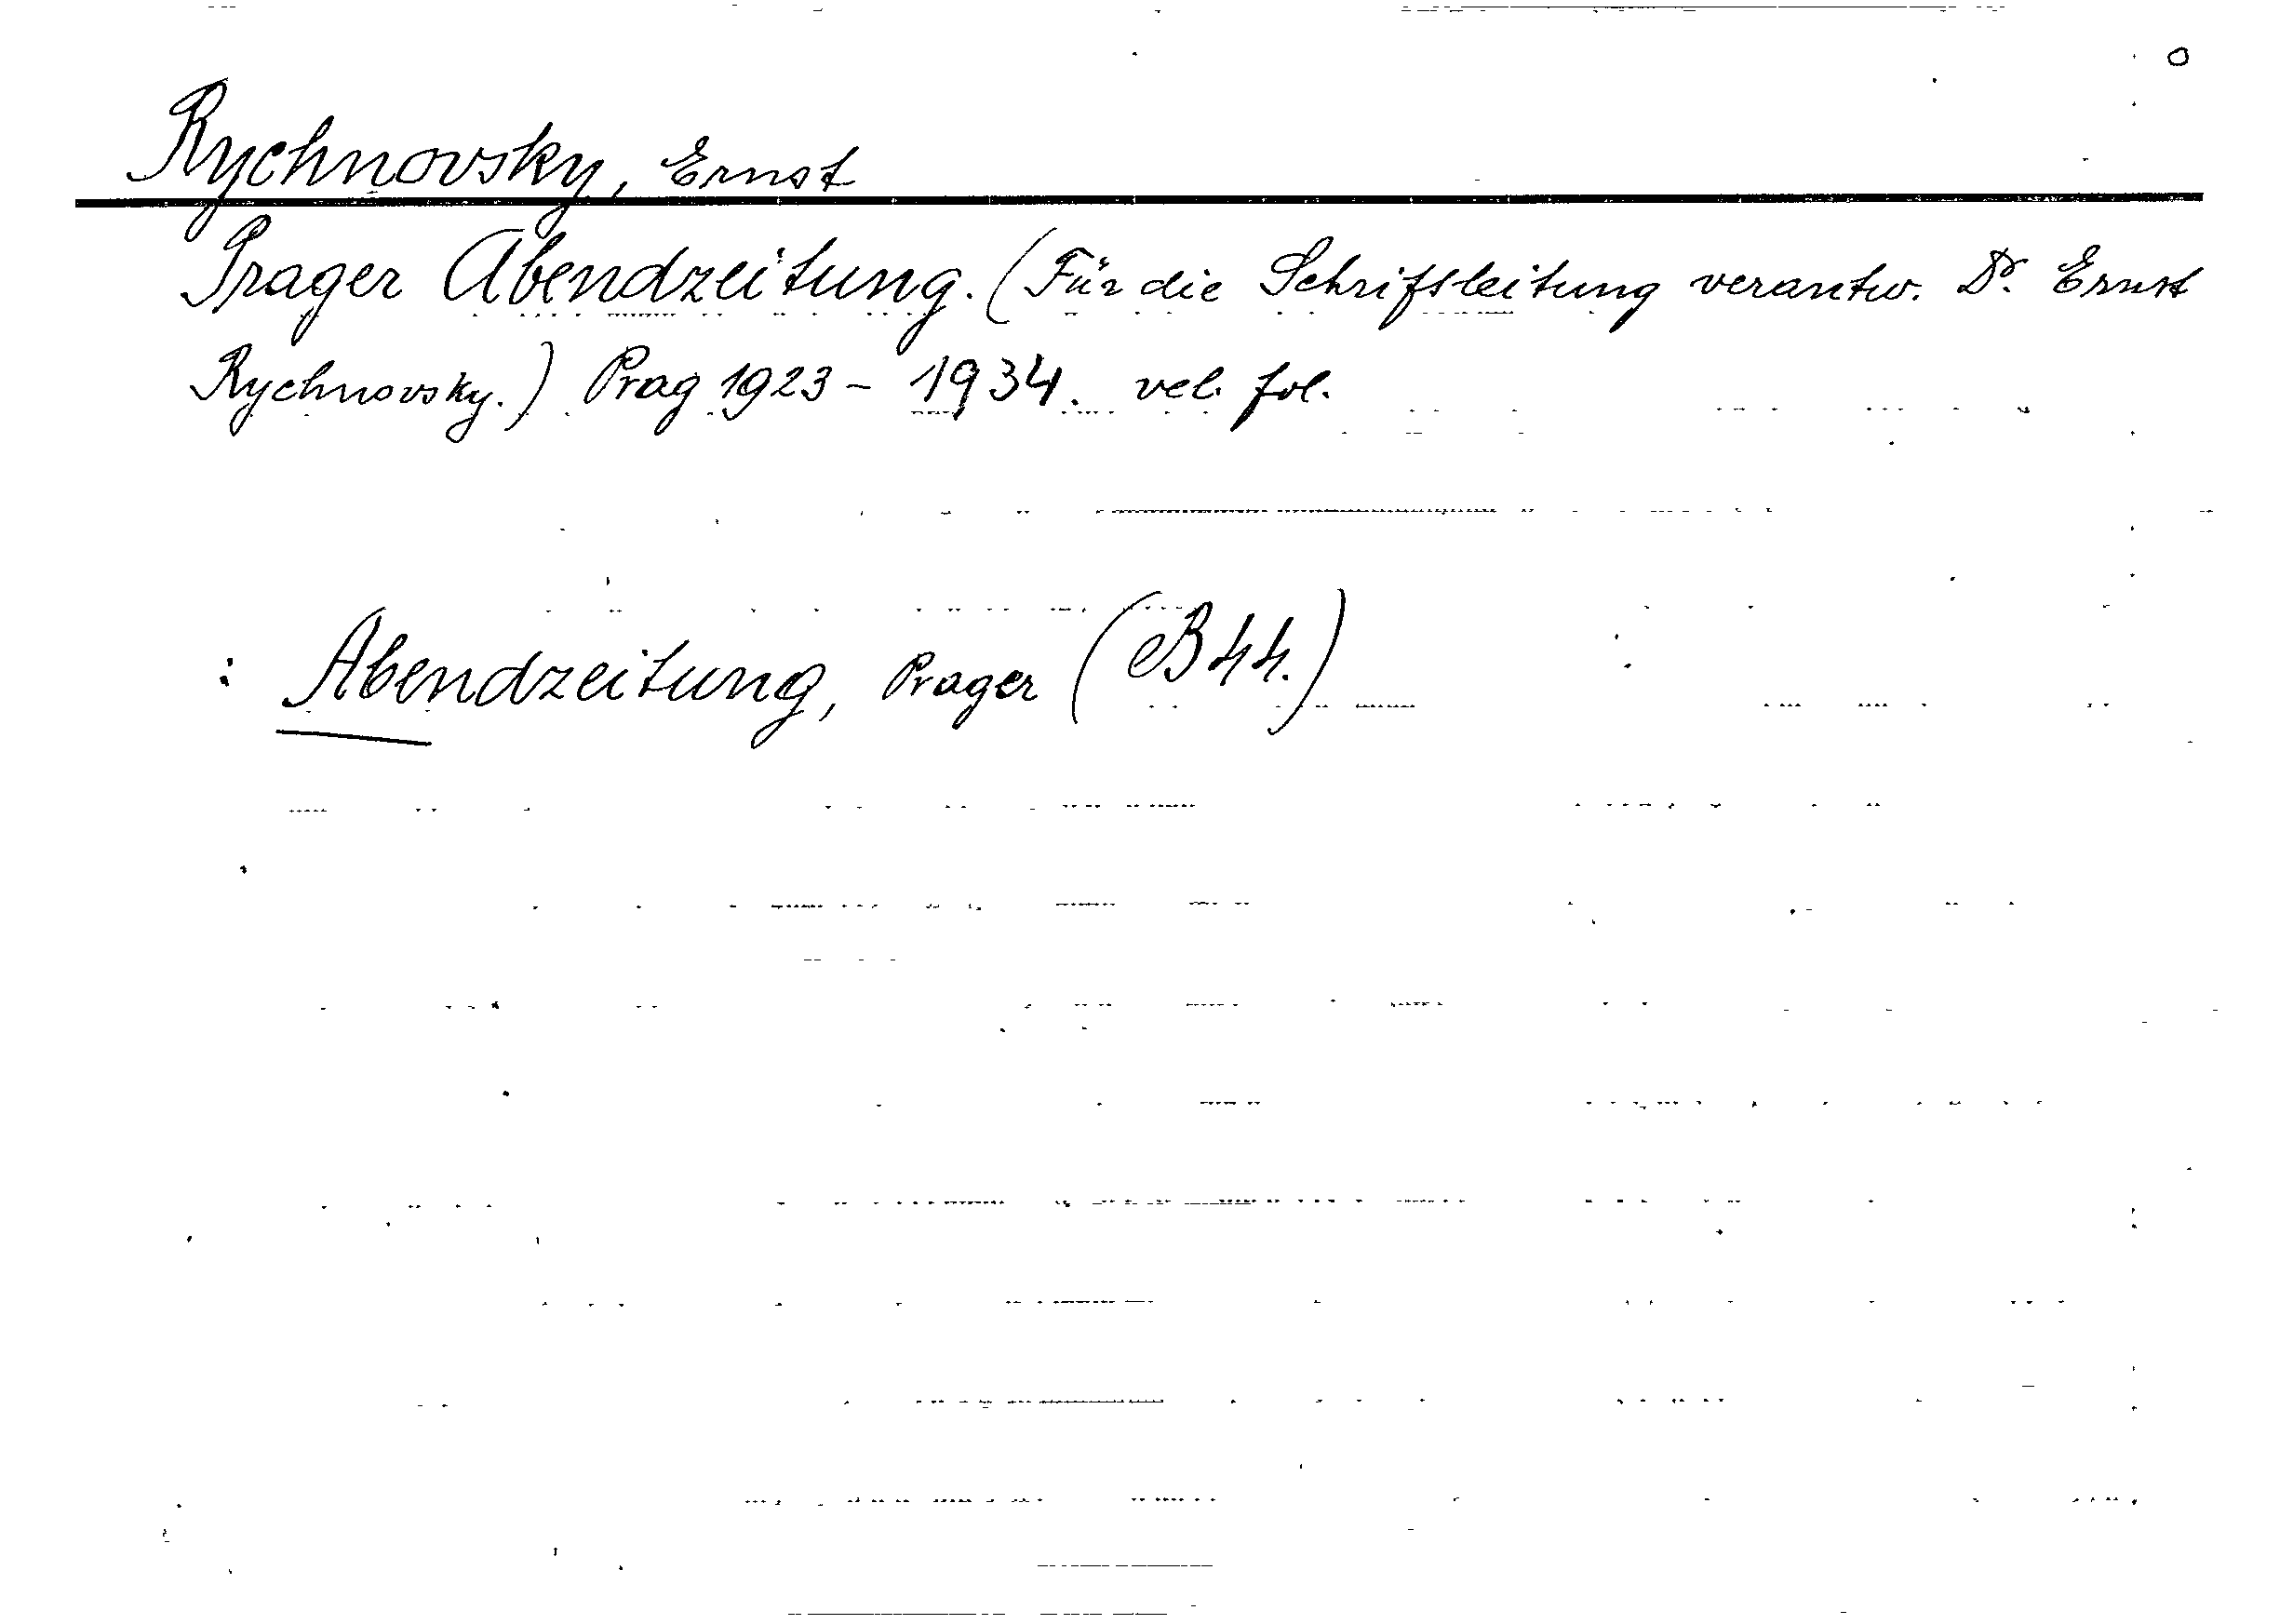 Rychnovsky, Ernst
Prager Abendzeitung. (Für die Schriftleitung verantw. Dr. Ernst
Rychnovsky.) Prag 1923 - 1934. vel. fol.
: Abendzeitung, Prager (B 44.)